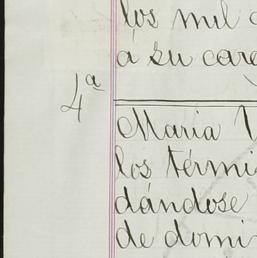 los mil
á su car
4ª
Maria
los térmi
dándose
de domi